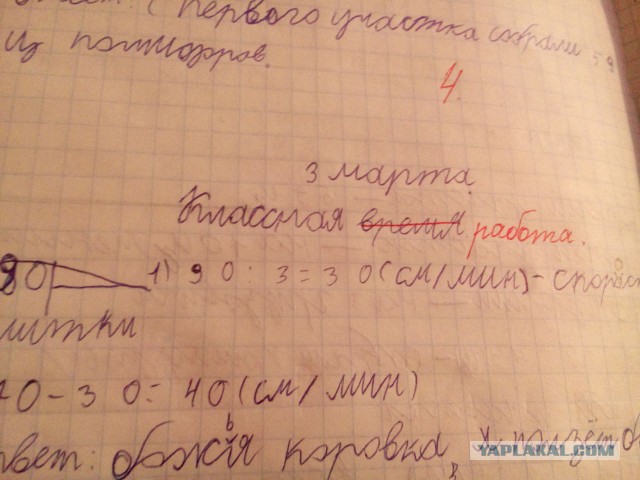 С первого участка собрали 59
из помидоров.
4.
3 марта
Классная время работа.
90 1) 90:3=30(см/мин)- скорост
0-30=40(см/мин)
твет: божья коровка
YAPLAKAL.COM